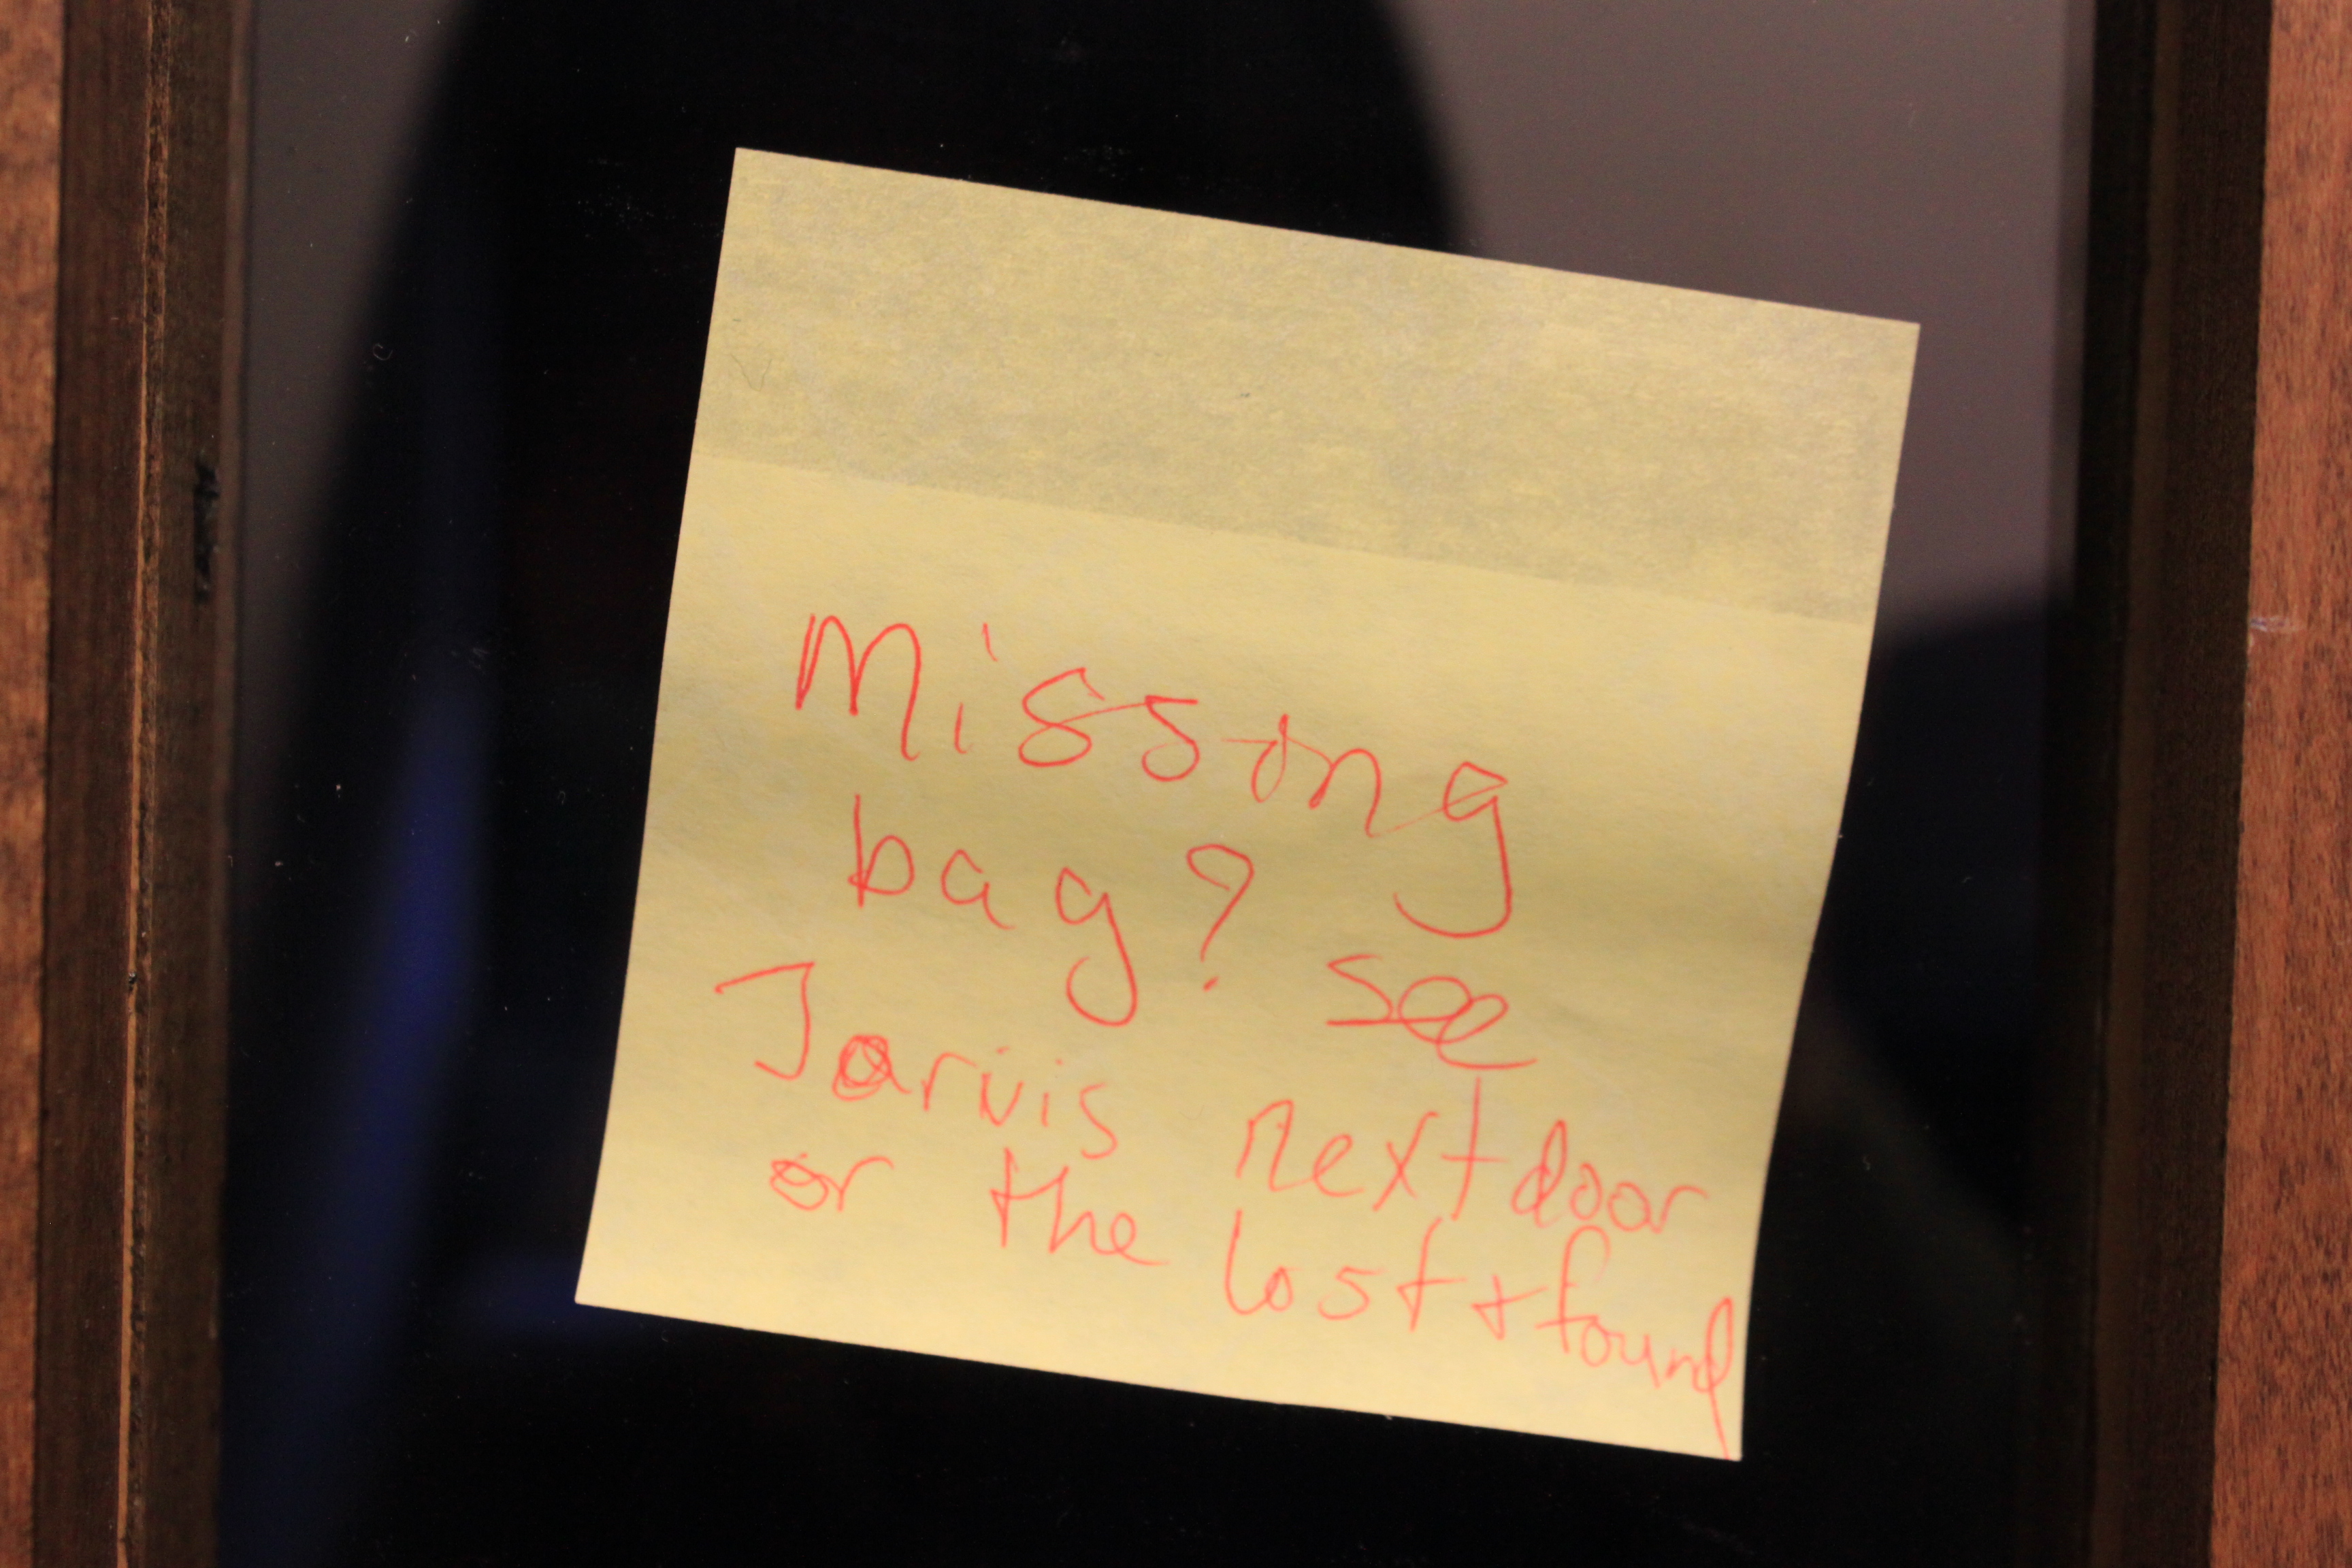 Missing
bag? see
Jarvis next door
or the lost + found